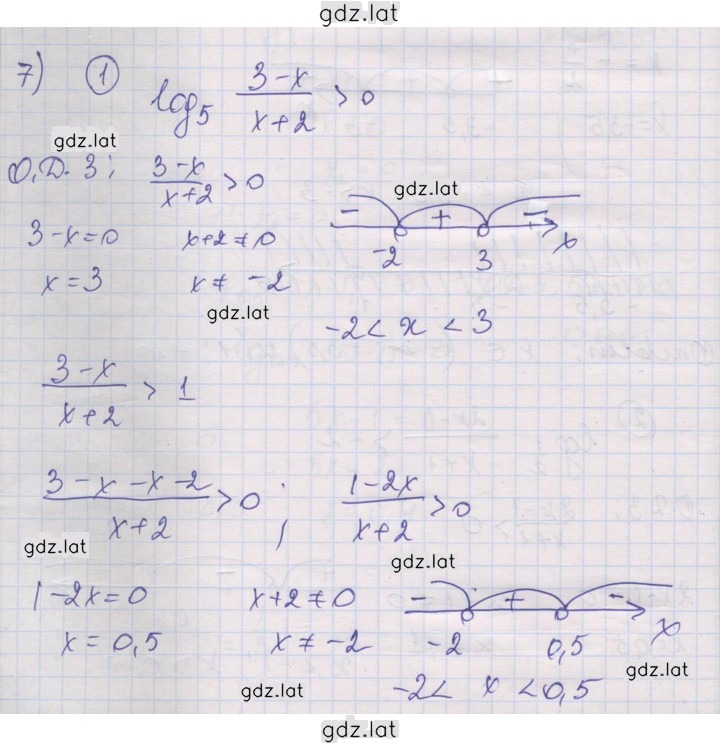 gdz.lat
7) ① log₅ (3-x)/(x+2) > 0
gdz.lat
О.Д.З; (3-x)/(x+2) > 0
gdz.lat
- + -
-2 3 x
3-x=0 x+2≠0
x=3 x≠-2
gdz.lat
-2< x <3
(3-x)/(x+2) > 1
(3-x-x-2)/(x+2) > 0 ; (1-2x)/(x+2) > 0
gdz.lat gdz.lat
1-2x=0 x+2≠0
- + -
x=0,5 x≠-2
-2 0,5 x
gdz.lat
gdz.lat
-2< x <0,5
gdz.lat